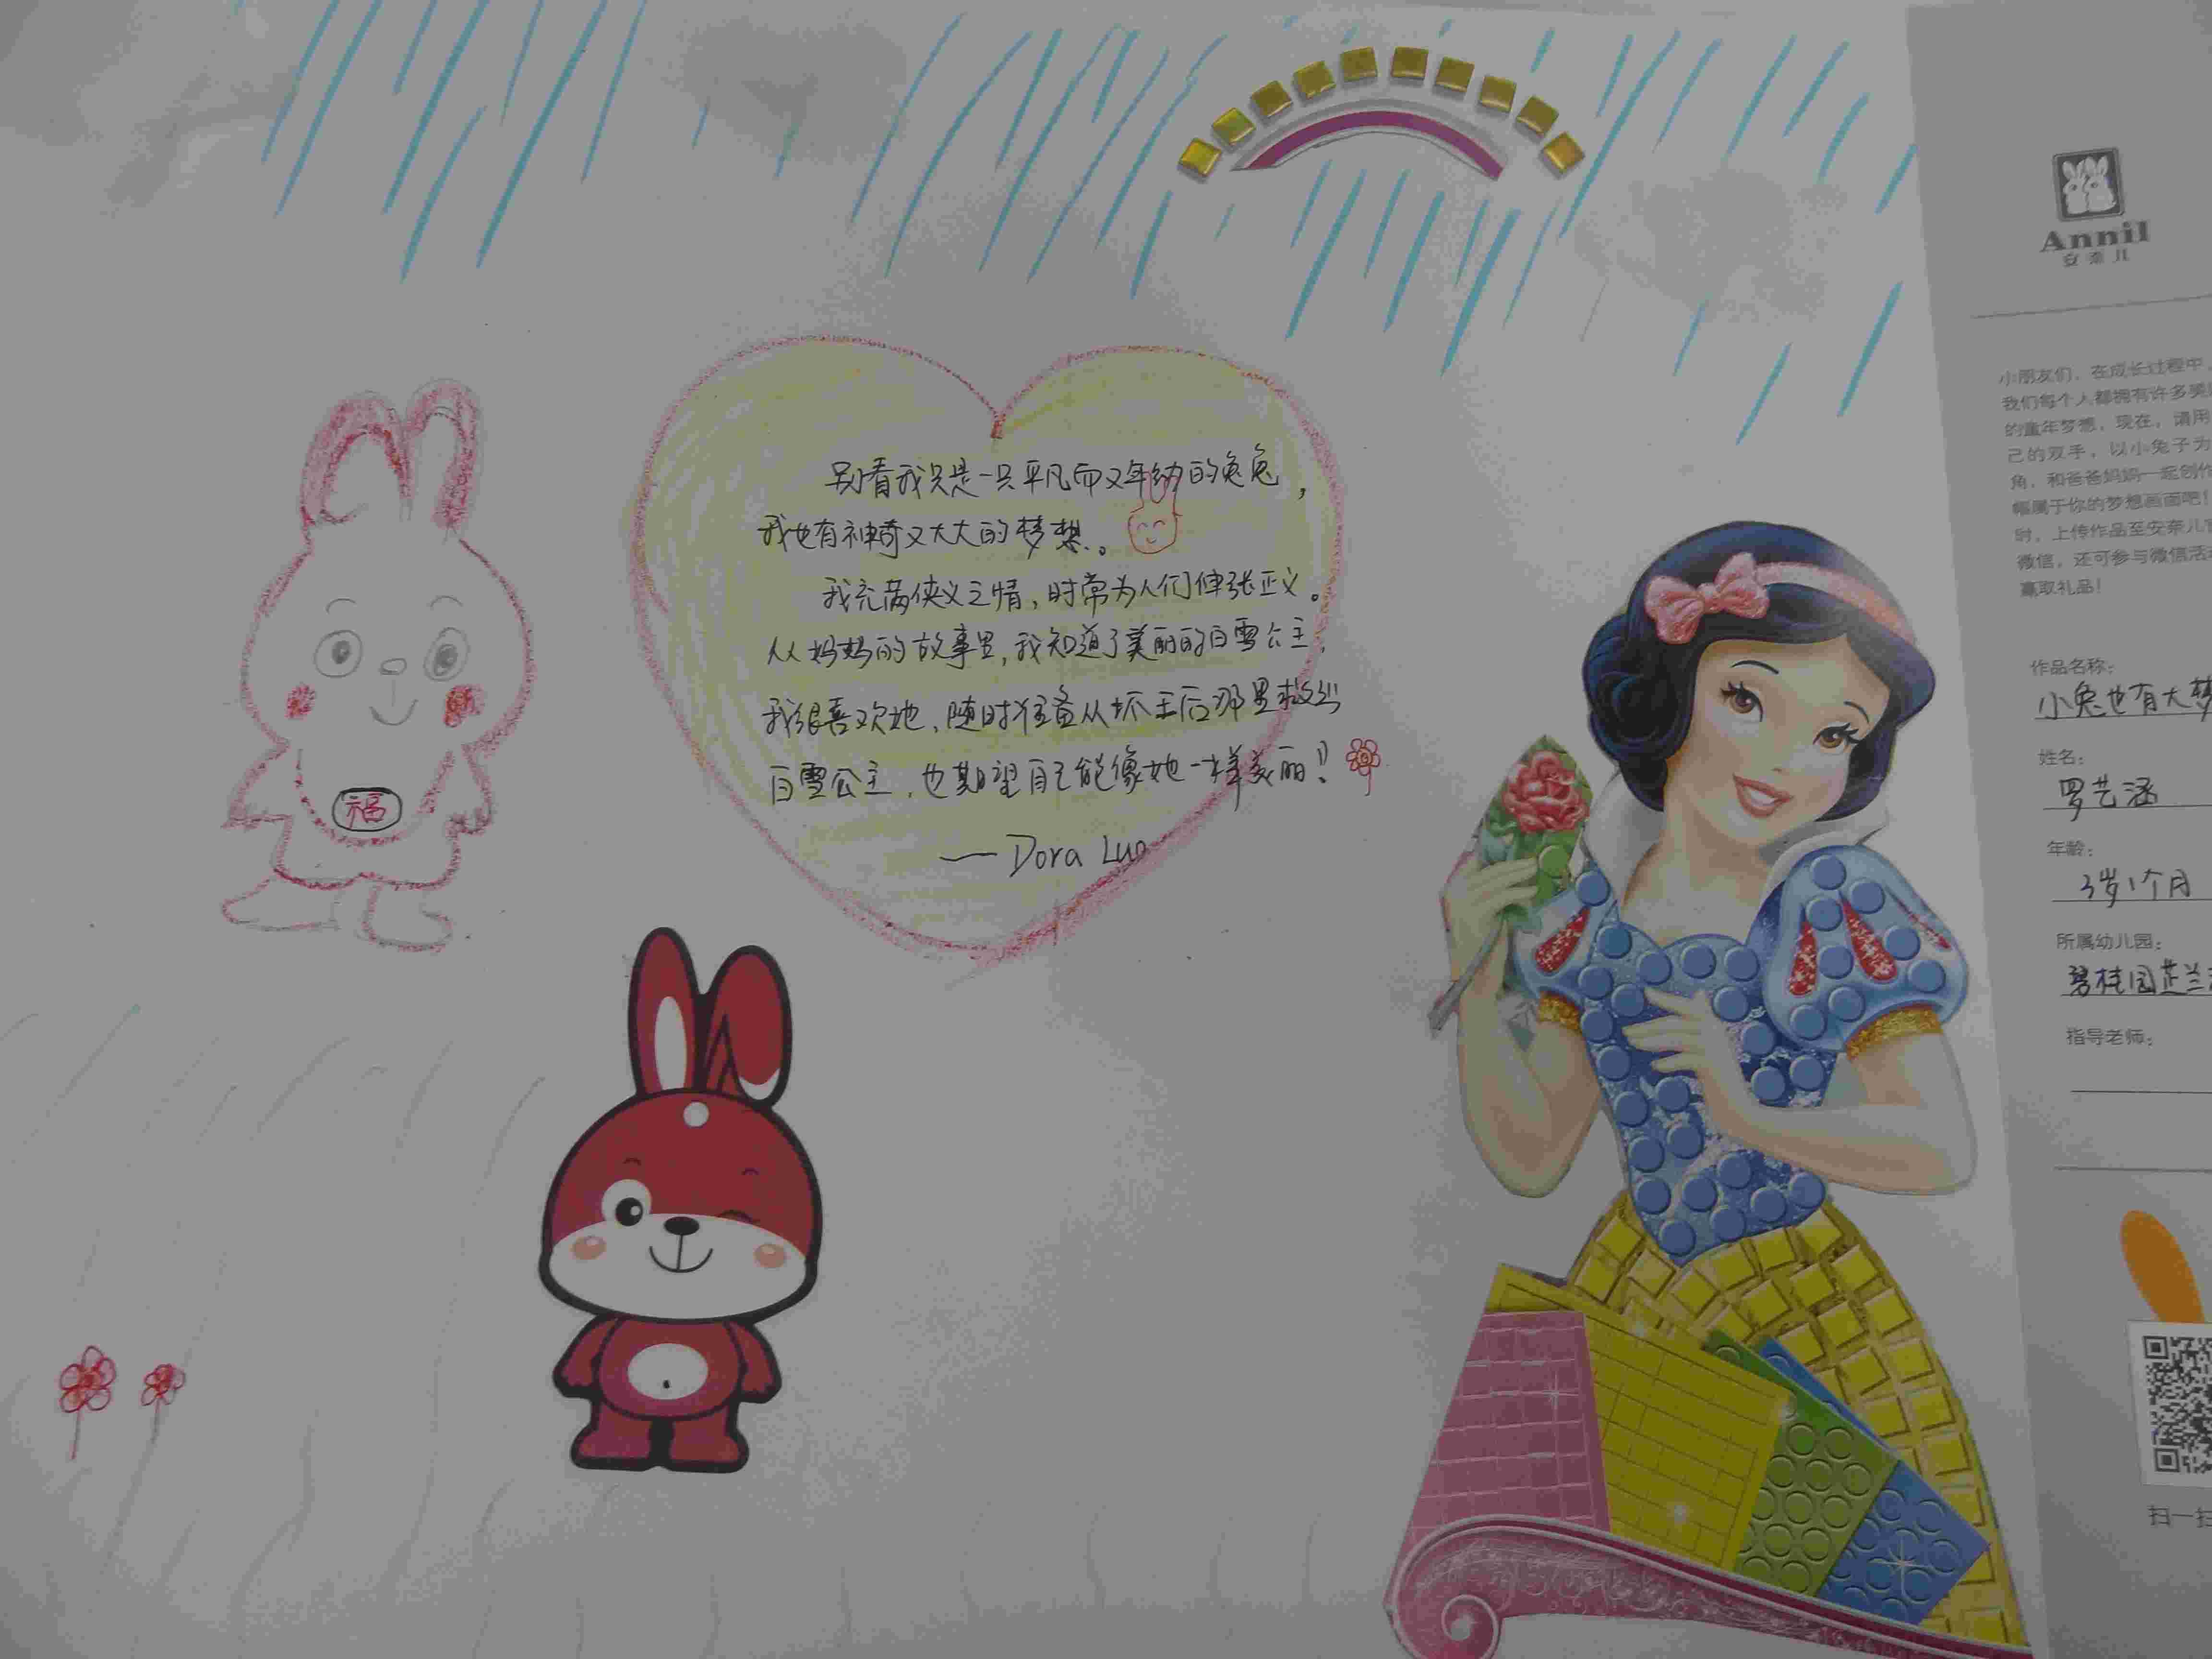 别看我只是一只平凡而又年幼的兔兔，
我也有神奇又大大的梦想。
我充满侠义之情，时常为人们伸张正义。
从妈妈的故事里，我知道了美丽的白雪公主，
我很喜欢她，随时准备从坏王后那里救出
白雪公主，也期望自己能像她一样美丽！
— Dora Luo
福
Annil
安奈儿
小朋友们，在成长过程中，
我们每个人都拥有许多美
的童年梦想，现在，请用
己的双手，以小兔子为
角，和爸爸妈妈一起创作
幅属于你的梦想画面吧！
时，上传作品至安奈儿官
微信，还可参与微信活动
赢取礼品！
作品名称：
小兔也有大梦
姓名：
罗艺涵
年龄：
3岁1个月
所属幼儿园：
碧桂园芷兰
指导老师：
扫一扫